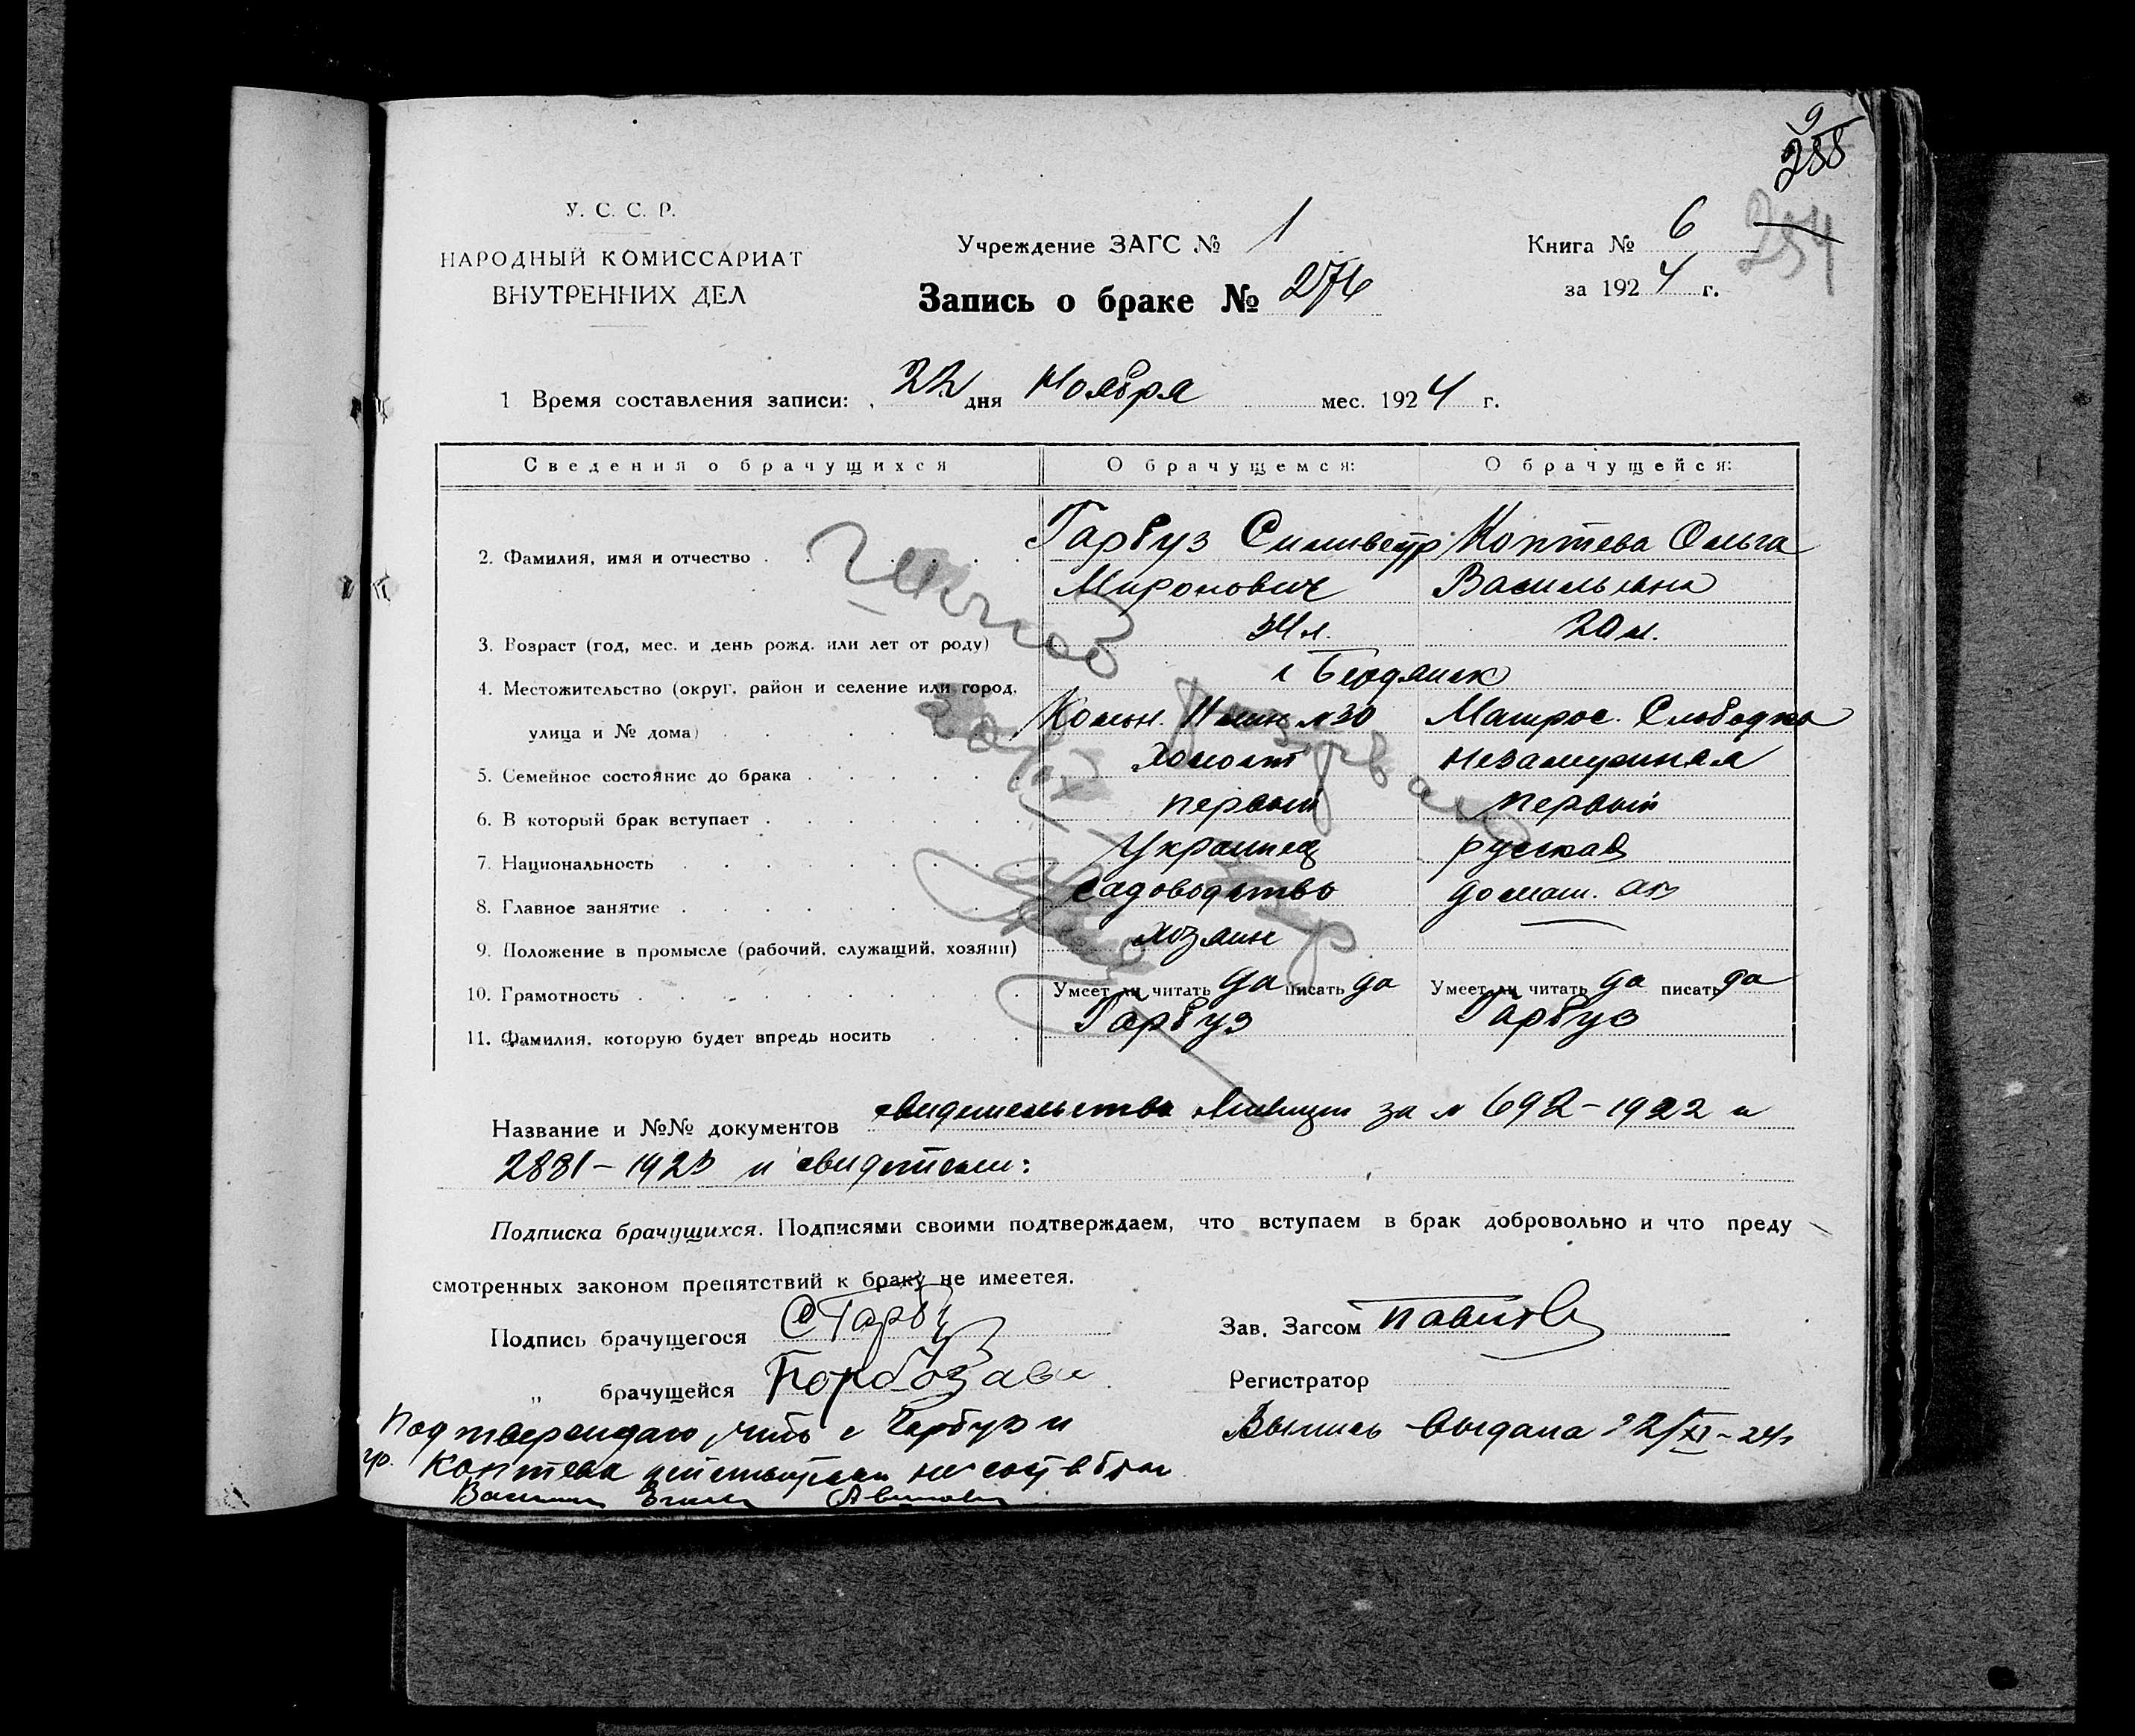 9
288
254
У. С. С. Р.
НАРОДНЫЙ КОМИССАРИАТ
ВНУТРЕННИХ ДЕЛ
Учреждение ЗАГС № 1
Запись о браке № 276
Книга № 6
за 1924 г.
1 Время составления записи: 22 дня Ноября мес. 1924 г.
Сведения о брачущихся О брачущемся: О брачущейся:
2. Фамилия, имя и отчество Гарбуз Силивестр Коптева Ольга
Миронович Васильевна
3. Возраст (год, мес. и день рожд. или лет от роду) 34 л. 20 л.
4. Местожительство (округ, район и селение или город, г Бердянск
улица и № дома) № 30 Матрос. Слободка
5. Семейное состояние до брака Холост незамужняя
6. В который брак вступает первый первый
7. Национальность Украинец русская
8. Главное занятие садоводство домаш.
9. Положение в промысле (рабочий, служащий, хозяин) хозяин
10. Грамотность Умеет ли читать да писать да Умеет ли читать да писать да
11. Фамилия, которую будет впредь носить Гарбуз Гарбуз
Название и №№ документов свидетельства за № 692-1922 и
2881-1923 и свидетели:
Подписка брачущихся. Подписями своими подтверждаем, что вступаем в брак добровольно и что преду
смотренных законом препятствий к браку не имеется.
Подпись брачущегося СГарбуз
Зав. Загсом
„ брачущейся
Регистратор
Подтверждаю что с Гарбуз и
гр. Коптева не сост в брак
Выпись выдана 22/XI-24г